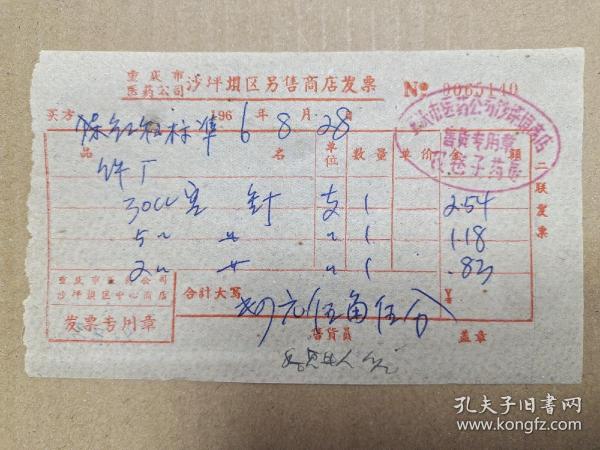 重庆市
医药公司 沙坪垻区另售商店发票 № 0065140
买方 标准 1966年8月28日
件厂
品名 单位 数量 单价 金额
30cc 针 支 1 2.54
5〃 〃 〃 1 1.18
2〃 〃 〃 1 .83
合計大写 元伍角伍分 ¥
重庆市医药公司
沙坪垻区中心商店
发票专用章
售貨員 盖章
二联发票
重庆市医药公司沙坪垻商店
售货专用章
药房
孔夫子旧书网
www.kongfz.com